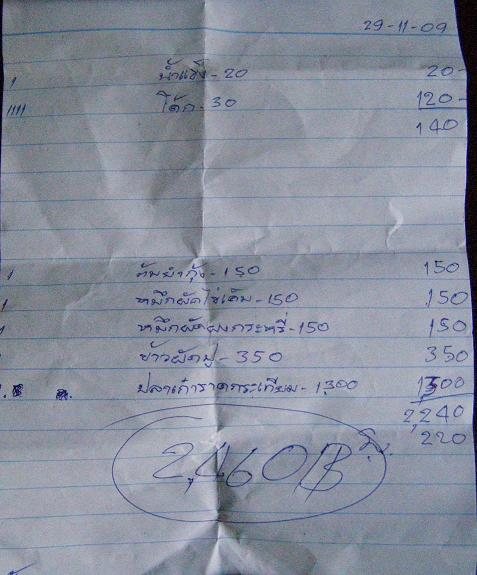 29-11-09
1 น้ำแข็ง - 20 20-
1111 โค้ก - 30 120-
140
1 ต้มยำกุ้ง - 150 150
1 หมึกผัดไข่เค็ม - 150 150
1 หมึกผัดผงกระหรี่ - 150 150
1 ข้าวผัดปู - 350 350
1. ปลาเก๋าราดกระเทียม - 1,300 1,300
2,240
220
2,460 ฿